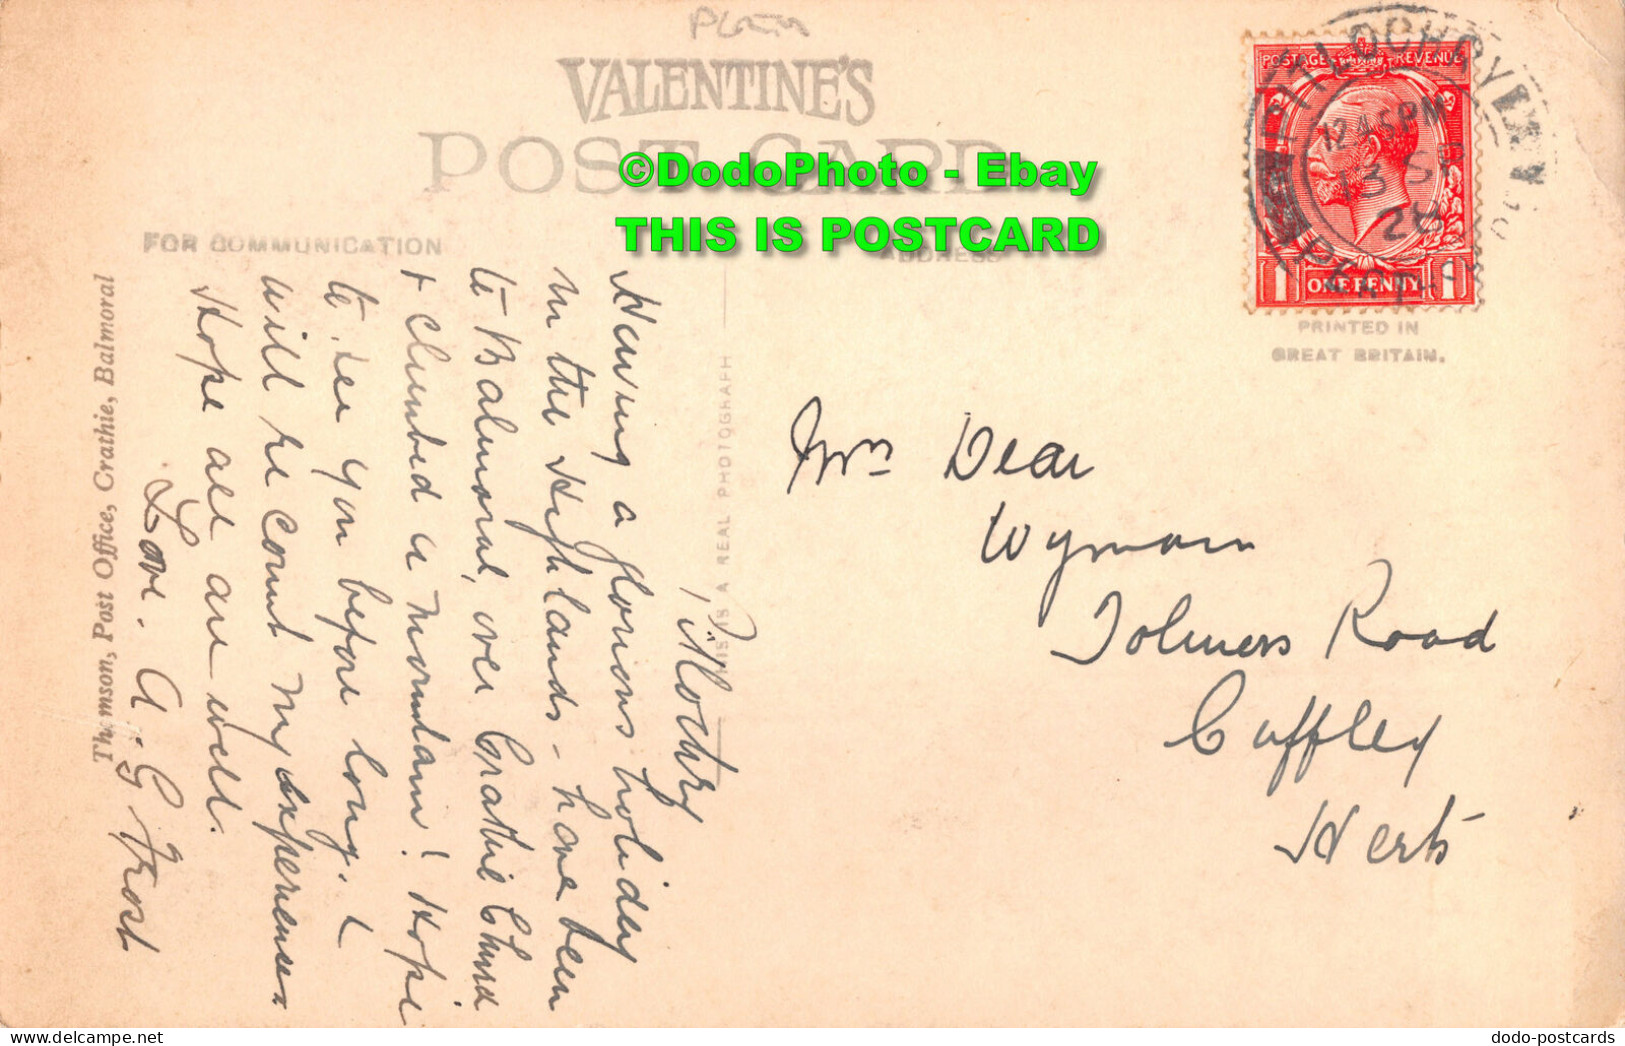 VALENTINE'S
POST CARD
©DodoPhoto - Ebay
THIS IS POSTCARD
FOR COMMUNICATION
ADDRESS
POSTAGE REVENUE
ONE PENNY
1 1
PITLOCHRY
12 45 PM
13 SP
28
PERTH
PRINTED IN
GREAT BRITAIN.
THIS IS A REAL PHOTOGRAPH
Thomson, Post Office, Crathie, Balmoral
Monday,
Having a glorious holiday
in the Highlands - have been
to Balmoral, over Crathie Church
& climbed a mountain! Hope
to see you before long. &
will recount my experiences
Hope all are well.
Love. A. G Frost
Mrs Dear
Wymarn
Tolmers Road
Cuffley
Herts
dodo-postcards